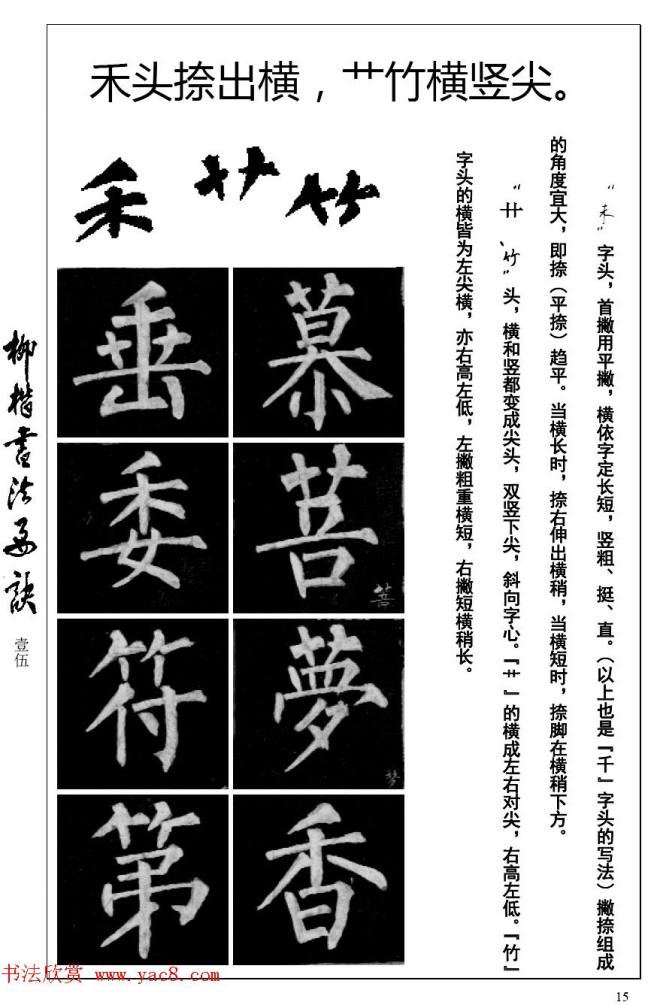 禾头捺出横，艹竹横竖尖。
禾 艹 竹
“禾”字头，首撇用平撇，横依字定长短，竖粗、挺、直。（以上也是『千』字头的写法）撇捺组成
的角度宜大，即捺（平捺）趋平。当横长时，捺右伸出横稍，当横短时，捺脚在横稍下方。
“艹、竹”头，横和竖都变成尖头，双竖下尖，斜向字心。『艹』的横成左右对尖，右高左低。『竹』
字头的横皆为左尖横，亦右高左低，左撇粗重横短，右撇短横稍长。
垂 慕
委 菩
菩
符 夢
梦
第 香
柳楷书法要诀
壹伍
书法欣赏 www.yac8.com
15